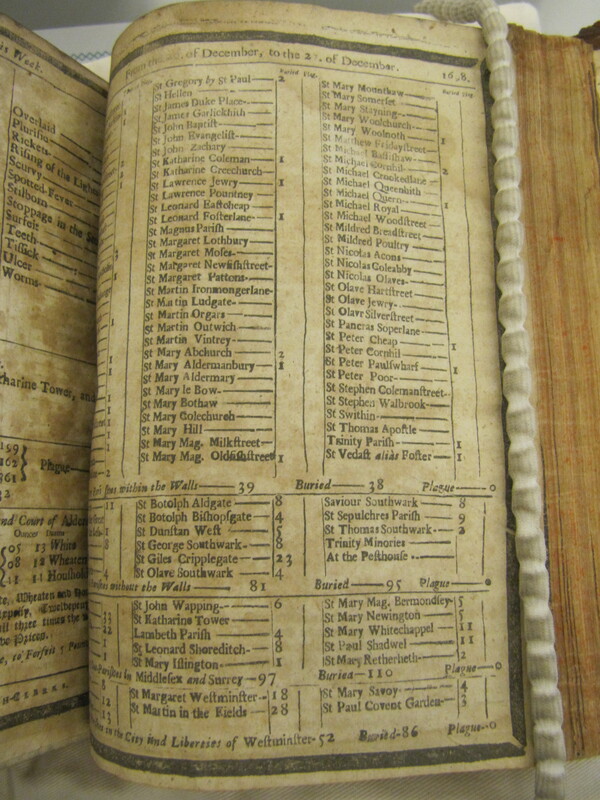 is Week.
Overlaid
Pluriſie
Rickets
Riſing of the Lights
Scurvy
Spotted-Feaver
Stilborn
Stoppage in the
Surfeit
Teeth
Tiſſick
Ulcer
Worms
tharine Tower, and
Plague
and Court of
13 White
12 Wheaten
11 Houſhold
From the of December, to the 2 . of December. 16 8.
Buried Plag.
St Gregory by St Paul 2
St Hellen
St James Duke Place
St James Garlickhith
St John Baptiſt
St John Evangeliſt
St John Zachary
St Katharine Coleman 1
St Katharine Creechurch
St Lawrence Jewry 1
St Lawrence Pountney
St Leonard Eaſtcheap
St Leonard Foſterlane 1
St Magnus Pariſh
St Margaret Lothbury
St Margaret Moſes
St Margaret Newfiſhſtreet
St Margaret Pattons
St Martin Ironmongerlane
St Martin Ludgate
St Martin Orgars
St Martin Outwich
St Martin Vintrey
St Mary Abchurch 2
St Mary Aldermanbury 1
St Mary Aldermary
St Mary le Bow
St Mary Bothaw
St Mary Colechurch
St Mary Hill
St Mary Mag. Milkſtreet
St Mary Mag. Oldfiſhſtreet 1
Buried Plag.
St Mary Mounthaw
St Mary Somerſet
St Mary Stayning
St Mary Woolchurch
St Mary Woolnoth 1
St Matthew Fridayſtreet
St Michael Baſſiſhaw
St Michael Cornhil 2
St Michael Crookedlane
St Michael Queenhith
St Michael Quern 1
St Michael Royal
St Michael Woodſtreet
St Mildred Breadſtreet
St Mildred Poultry
St Nicolas Acons
St Nicolas Coleabby
St Nicolas Olaves
St Olave Hartſtreet
St Olave Jewry
St Olave Silverſtreet
St Pancras Soperlane
St Peter Cheap 1
St Peter Cornhil
St Peter Paulſwharf 1
St Peter Poor
St Stephen Colemanſtreet
St Stephen Walbrook
St Swithin
St Thomas Apoſtle
Trinity Pariſh 1
St Vedaſt alias Foſter 1
within the Walls 39 Buried 38 Plague 0
St Botolph Aldgate 8
St Botolph Biſhopſgate 4
St Dunſtan Weſt 5
St George Southwark 8
St Giles Cripplegate 23
St Olave Southwark 4
Saviour Southwark 8
St Sepulchres Pariſh 9
St Thomas Southwark 2
Trinity Minories
At the Peſthouſe
without the Walls 81 Buried 95 Plague 0
St John Wapping 6
St Katharine Tower
Lambeth Pariſh 4
St Leonard Shoreditch 8
St Mary Iſlington 1
St Mary Mag. Bermondſey 5
St Mary Newington 5
St Mary Whitechappel 11
St Paul Shadwel 11
St Mary Retherheth 2
in Middleſex and Surrey 97 Buried 110 Plague 0
St Margaret Weſtminſter 18
St Martin in the Fields 28
St Mary Savoy 4
St Paul Covent Garden 3
in the City and Liberties of Weſtminſter 52 Buried 86 Plague 0